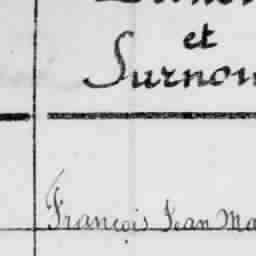 et
Surnom
François Jean Ma